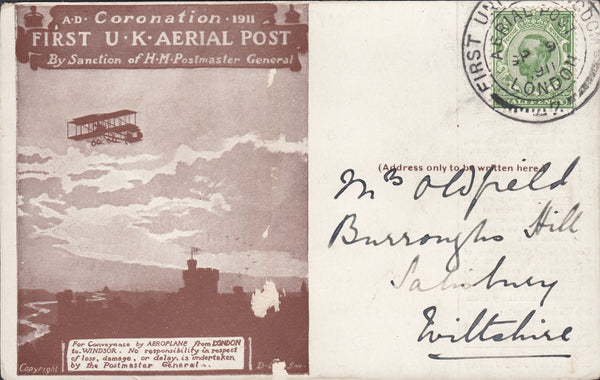 A·D· Coronation · 1911
FIRST U·K·AERIAL POST
By Sanction of H·M·Postmaster General
FIRST UN
AERIAL POST
SP 9
1911
LONDON
(Address only to be written here)
Mrs Oldfield
Burroughs Hill
Salisbury
Wiltshire
For Conveyance by AEROPLANE from LONDON
to WINDSOR. No responsibility in respect
of loss, damage, or delay, is undertaken
by the Postmaster General
Copyright